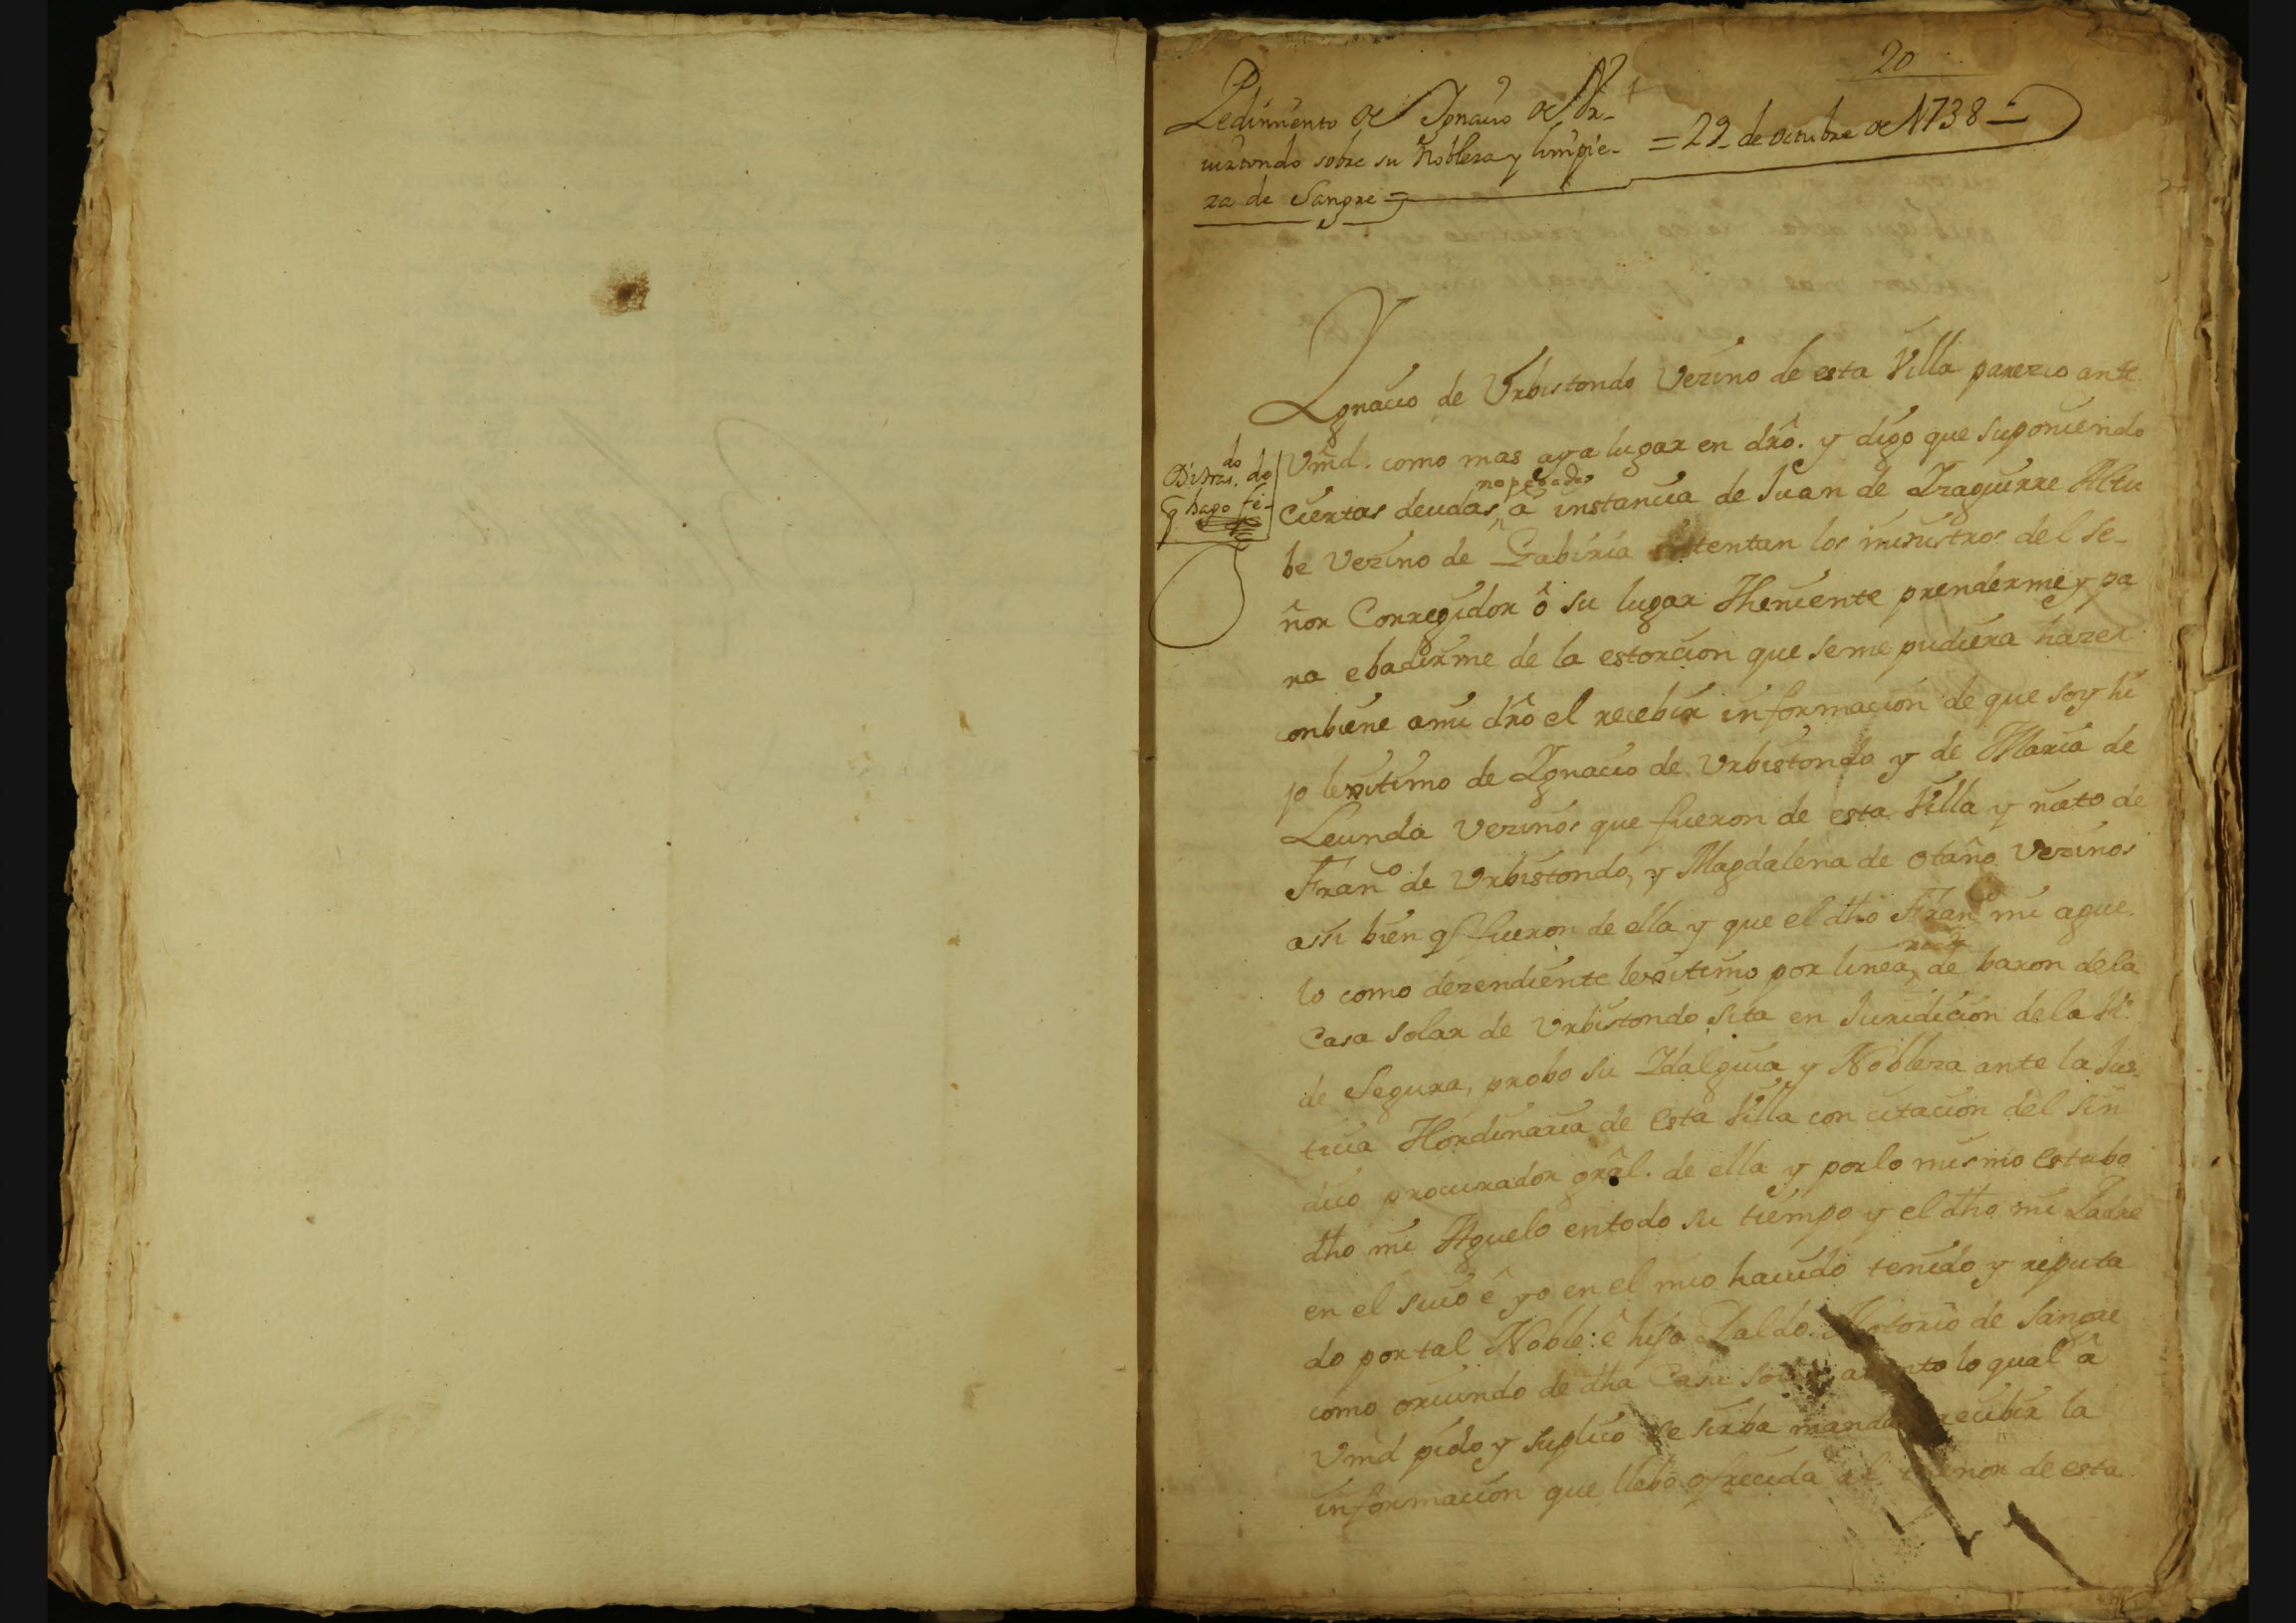 20
Pedimiento de Ignacio de Vr-
uiztondo sobre su Nobleza y limpie- = 29 de octubre de 1738 =
za de Sangre =
Ygnacio de Vrbistondo Vezino de esta Villa parezco ante
Vmd. como mas aya lugar en dro. y digo que suponiendo
no pagadas
ciertas deudas, a instancia de Juan de Yzaguirre Altu
do
do
q hago fe-
be Vezino de Gabiria intentan los ministros del se-
ñor Corregidor ô su lugar Theniente prenderme y pa
ra ebadirme de la estorcion que seme pudiera hazer
conbiene ami dro el recebir informacion de que soy hi
jo lexitimo de Ygnacio de Vrbistondo y de Maria de
Leunda Vezinos que fueron de esta Villa y nieto de
Franco de Vrbistondo, y Magdalena de Otaño Vezinos
assi bien q fueron de ella y que el dho Franco mi ague
lo como dezendiente lexitimo por linea de baron dela
Casa solar de Vrbistondo sita en Juridicion dela Va.
de Segura, probo su Ydalguia y Nobleza ante la Jus-
ticia Hordinaria de esta Villa con citacion del Sin
dico procurador gral. de ella y porlo mismo estubo
dho mi Aguelo entodo su tiempo y el dho mi Padre
en el suio ê yo en el mio hauido tenido y reputa
do portal Noble: ê hijo Dalgo Notorio de Sangre
como oriundo de dha Casa solar atento lo qual â
Vmd pido y suplico se sirba mandar recibir la
informacion que llebo ofrecida al thenor de esta